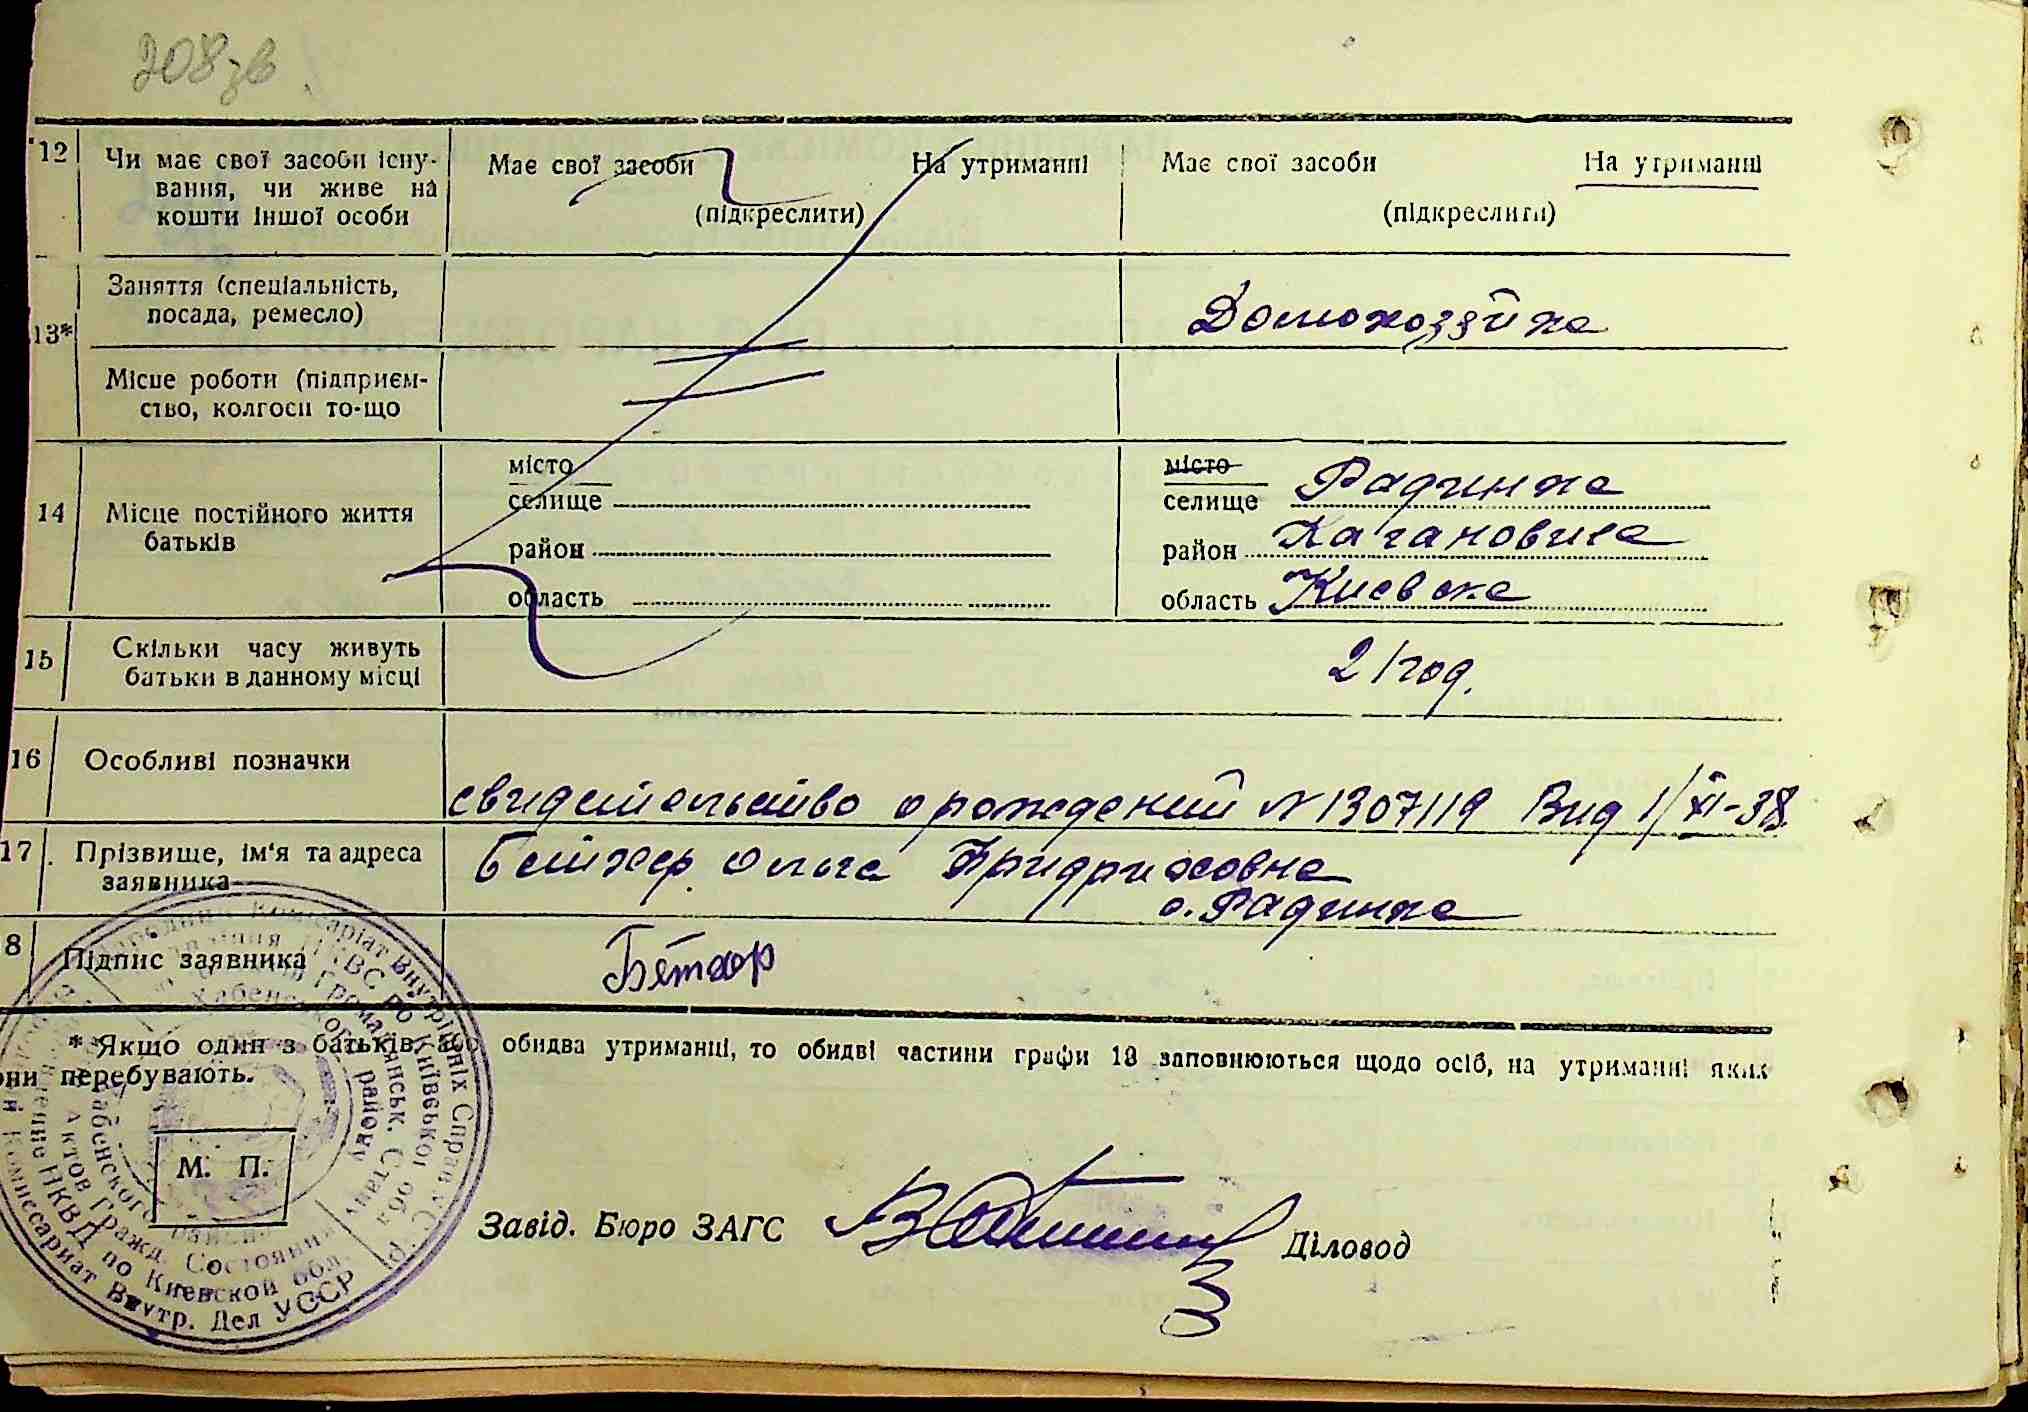 208зв
12 Чи має свої засоби існу-
вання, чи живе на
кошти іншої особи
Має свої засоби На утриманні
(підкреслити)
Має свої засоби На утриманні
(підкреслити)
13* Заняття (спеціальність,
посада, ремесло)
Домохозяйка
Місце роботи (підприєм-
ство, колгосп то-що
14 Місце постійного життя
батьків
місто
селище
район
область
місто
селище Радинка
район Кагановича
область Киевска
15 Скільки часу живуть
батьки в данному місці
21 год.
16 Особливі позначки
свидетельство о рождении N 1307119 Выд 1/XI-38
17. Прізвище, ім'я та адреса
заявника
Ольга Фридриховна
с. Радинка
8 Підпис заявника
* Якщо один з батьків або обидва утриманці, то обидві частини графи 13 заповнюються щодо осіб, на утриманні яких
они перебувають.
М. П.
Завід. Бюро ЗАГС
Діловод
Народний Комісаріат Внутрішніх Справ УС
НКВС по Київської обл.
Громадянськ. Стану
Хабенського району
Комиссариат Внутр. Дел УССР
НКВД по Киевской обл.
Актов Гражд. Состояния
Хабенского района